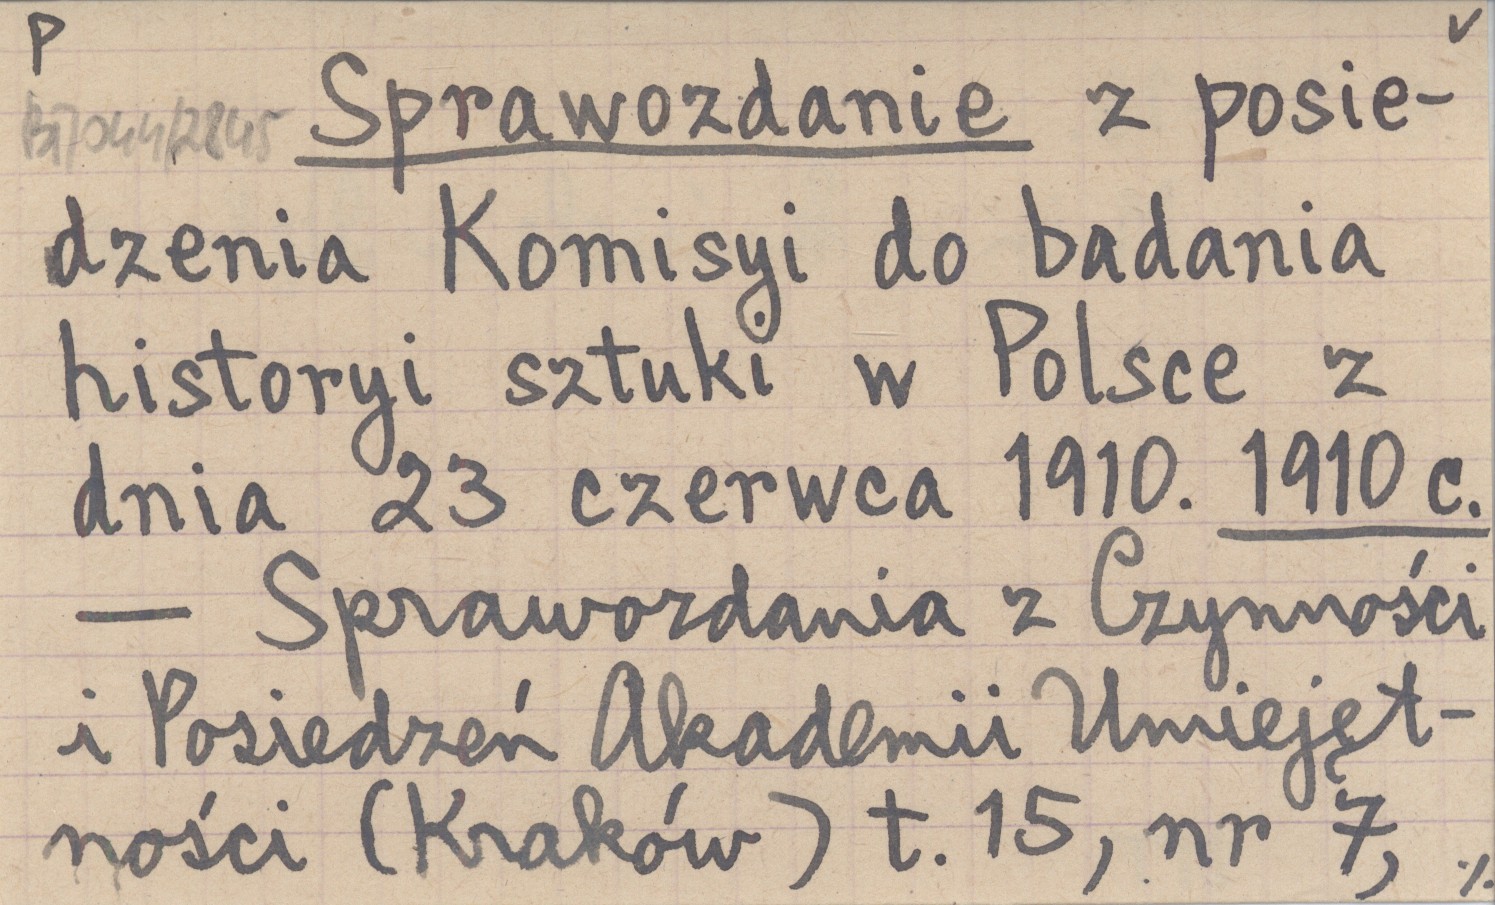 P v
Sprawozdanie z posie-
dzenia Komisyi do badania
historyi sztuki w Polsce z
dnia 23 czerwca 1910. 1910 c.
— Sprawozdania z Czynności
i Posiedzeń Akademii Umiejęt-
ności (Kraków) t. 15, nr 7,
./.